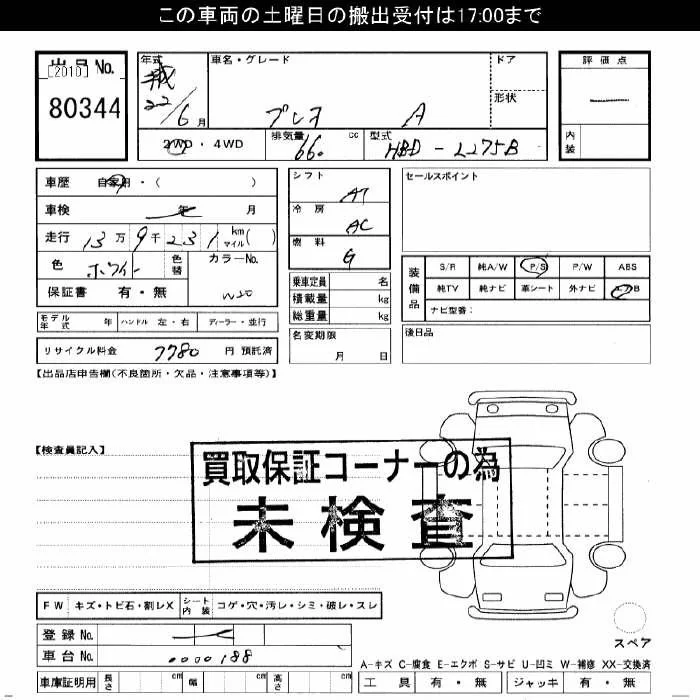 この車両の土曜日の搬出受付は17:00まで
出品No.
[2010]
80344
年式
22/6月
車名・グレード
プレオ A
ドア
形状
2WD・4WD
排気量 660 cc
型式 HBD-L275B
評価点
内装
車歴 自家用・( )
車検 年 月
走行 13万9千231 km マイル( )
色 ホワイト 色替
カラーNo. W20
保証書 有・無
シフト AT
冷房 AC
燃料 G
乗車定員 名
積載量 kg
総重量 kg
名変期限
月 日
セールスポイント
装備品
S/R 純A/W P/S P/W ABS
純TV 純ナビ 革シート 外ナビ エアB
ナビ型番:
後日品
モデル年式 年 ハンドル 左・右 ディーラー・並行
リサイクル料金 7780 円 預託済
【出品店申告欄(不良箇所・欠品・注意事項等)】
【検査員記入】
買取保証コーナーの為
未検査
FW キズ・トビ石・割レX シート内装 コゲ・穴・汚レ・シミ・破レ・スレ
登録No.
車台No. 0000188
車庫証明用 長さ cm 幅 cm 高さ cm
スペア
A-キズ C-腐食 E-エクボ S-サビ U-凹ミ W-補修 XX-交換済
工具 有・無 ジャッキ 有・無